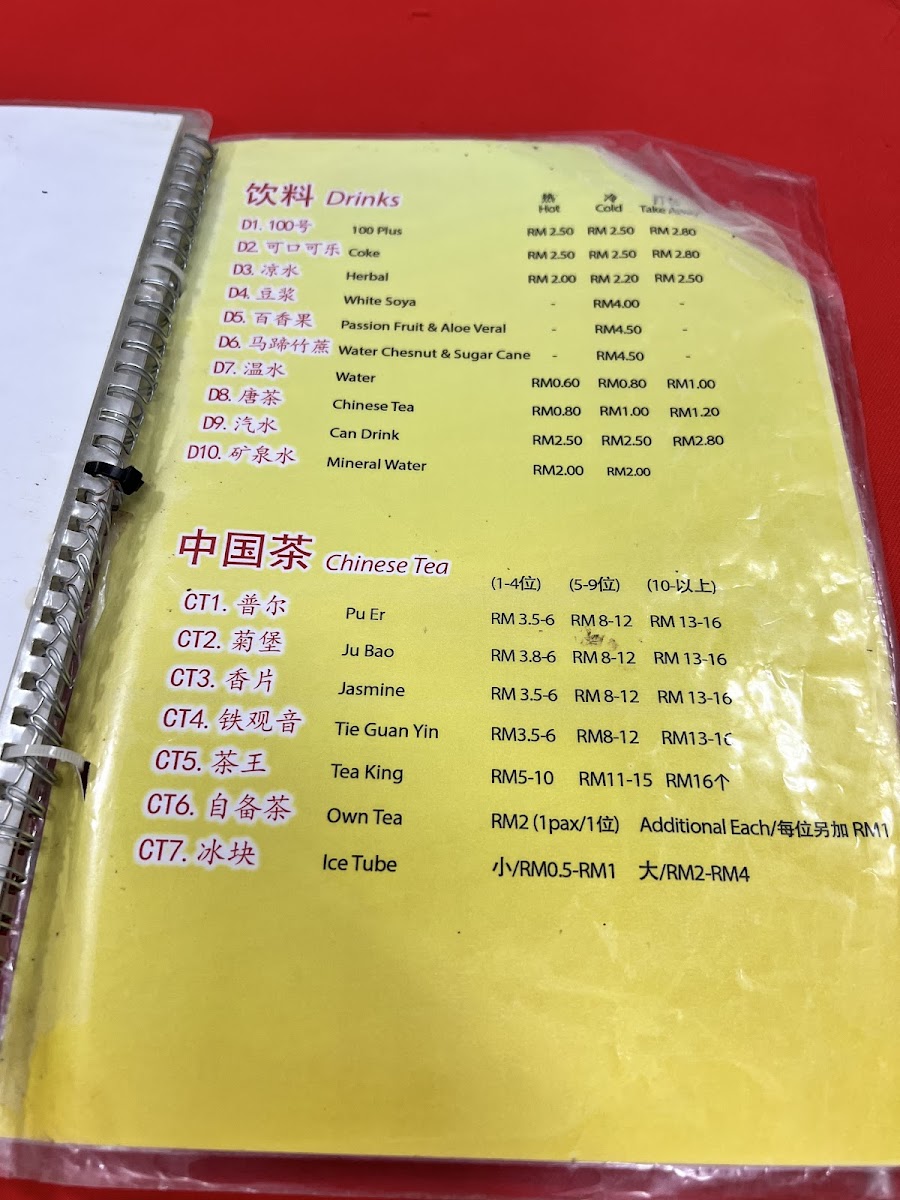 饮料 Drinks 热 冷
Hot Cold Take Away
D1. 100号 100 Plus RM 2.50 RM 2.50 RM 2.80
D2. 可口可乐 Coke RM 2.50 RM 2.50 RM 2.80
D3. 凉水 Herbal RM 2.00 RM 2.20 RM 2.50
D4. 豆浆 White Soya - RM4.00 -
D5. 百香果 Passion Fruit & Aloe Veral - RM4.50 -
D6. 马蹄竹蔗 Water Chesnut & Sugar Cane - RM4.50 -
D7. 温水 Water RM0.60 RM0.80 RM1.00
D8. 唐茶 Chinese Tea RM0.80 RM1.00 RM1.20
D9. 汽水 Can Drink RM2.50 RM2.50 RM2.80
D10. 矿泉水 Mineral Water RM2.00 RM2.00
中国茶 Chinese Tea (1-4位) (5-9位) (10-以上)
CT1. 普尔 Pu Er RM 3.5-6 RM 8-12 RM 13-16
CT2. 菊堡 Ju Bao RM 3.8-6 RM 8-12 RM 13-16
CT3. 香片 Jasmine RM 3.5-6 RM 8-12 RM 13-16
CT4. 铁观音 Tie Guan Yin RM3.5-6 RM8-12 RM13-16
CT5. 茶王 Tea King RM5-10 RM11-15 RM16个
CT6. 自备茶 Own Tea RM2 (1pax/1位) Additional Each/每位另加 RM1
CT7. 冰块 Ice Tube 小/RM0.5-RM1 大/RM2-RM4